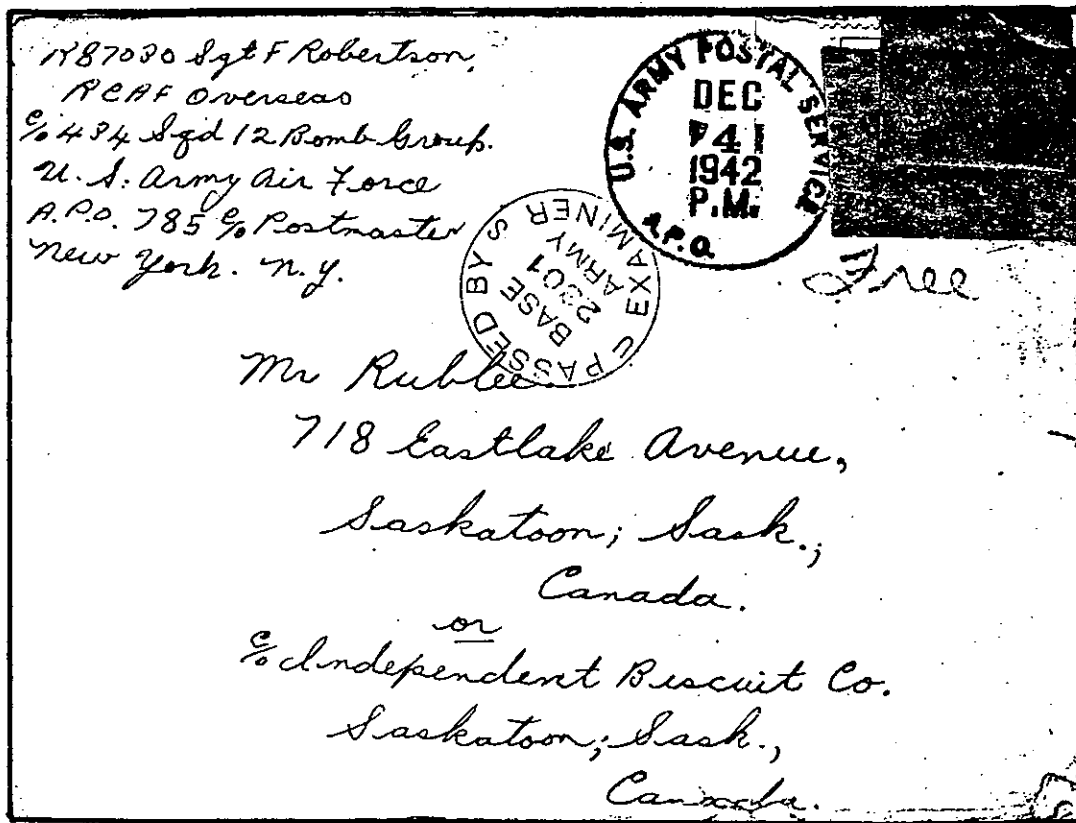 R87030 Sgt F Robertson,
RCAF Overseas
c/o 434 Sqd 12 Bomb Group.
U. S. Army Air Force
A.P.O. 785 c/o Postmaster
New York. N.Y.
U.S. ARMY POSTAL SERVICE
DEC
1942
P.M.
A.P.O.
PASSED BY
BASE
2301
ARMY EXAMINER
Free
Mr Rublee.
718 Eastlake Avenue,
Saskatoon; Sask.,
Canada.
or
c/o Independent Biscuit Co.
Saskatoon; Sask.,
Canada.